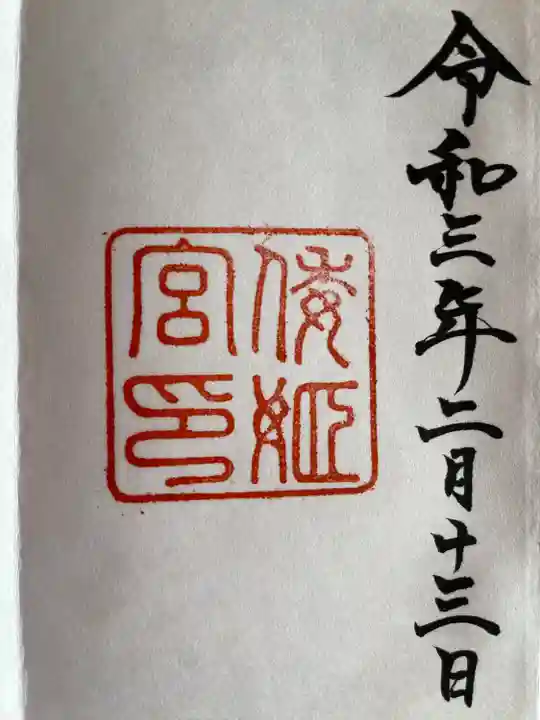 令和三年二月十三日
倭姫
宮印